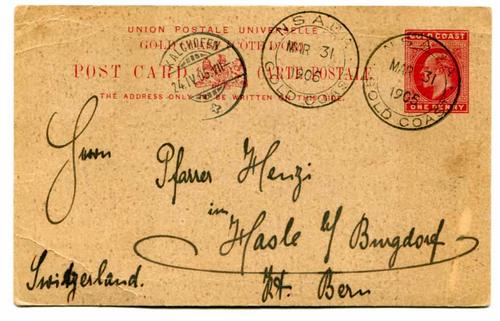 UNION POSTALE UNIVERSELLE
GOLD COAST (CÔTE D'OR)
POST CARD CARTE POSTALE
THE ADDRESS ONLY TO BE WRITTEN ON THIS SIDE.
GOLD COAST
ONE PENNY
NSABA
MAR 31
1905
GOLD COAST
NSABA
MAR 31
1905
GOLD COAST
KALCHOFEN
24.IV.05.VII
Herrn Pfarrer Henzi
im
Hasle b/ Burgdorf
Switzerland. Kt. Bern